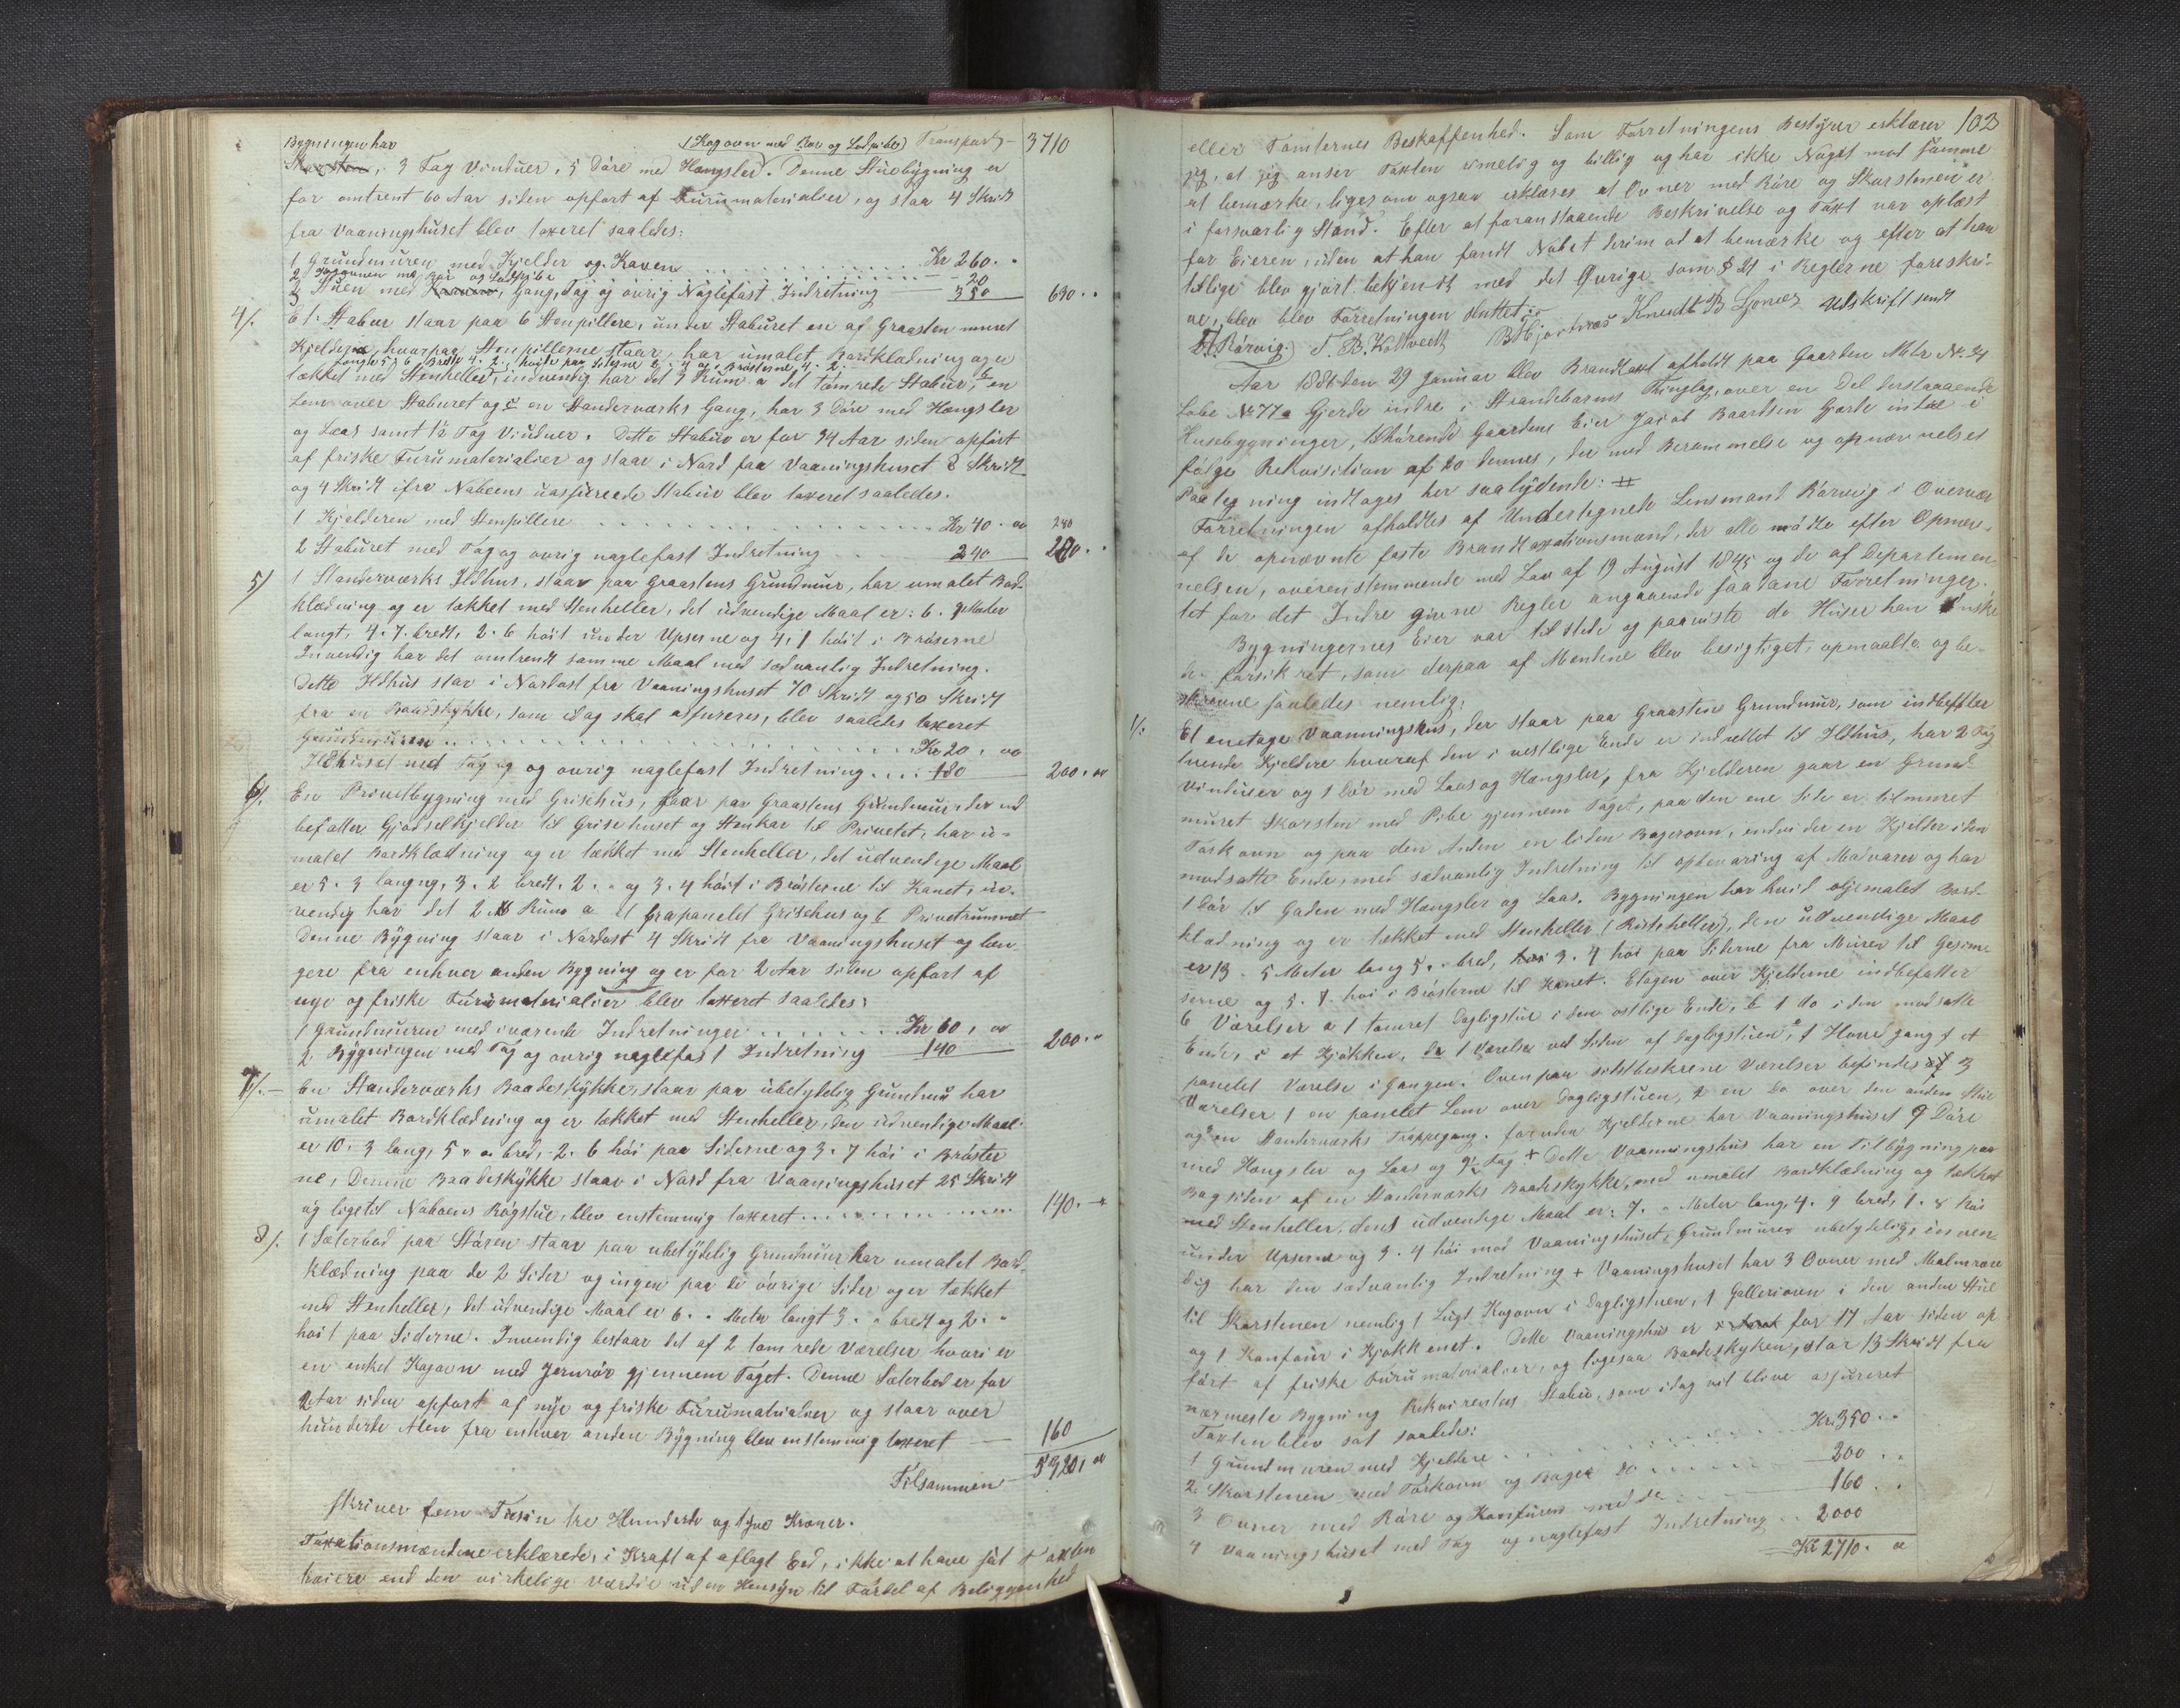 Bygningen har (1 Kogovn med Rør og Lodpibe) Transport 3710
Skorsten, 3 Fag Vinduer, 5 Döre med Hængsler. Denne Stuebygning er
for omtrent 60 Aar siden opfört af Furumaterialier, og staar 4 Skridt
fra Vaaningshuset blev taxeret saaledes:
1 Grundmuren med Kjelder og Kaven Kr 260 ..
2 Kogovnen med Rör og Lodpibe 20
3 Stuen med Gang, Tag og övrig Naglefast Indretning 350 630 ..
4/. Et Stabur staar paa 6 Stenpillere, under Staburet en af Graasten muret
Kjelder hvorpaa Stenpillerne staar, har umalet Bordklædning og er
Længde 5. 6 Brede 4. 2. höide paa Siderne og i Brösterne 4. 2.
tækket med Stenheller, indvendig har det 3 Rum a det tömrede Stabur, b en
Lem over Staburet og c en Standerværks Gang, har 3 Döre med Hængsler
og Laas samt 1½ Fag Vinduer. Dette Stabur er for 34 Aar siden opfört
af friske Furumaterialier og staar i Nord fra Vaaningshuset 8 Skridt
og 4 Skridt ifra Naboens uassurerede Stabur blev taxeret saaledes.
1 Kjelderen med Stenpillere Kr 40. 00 280
2 Staburet med Tag og övrig naglefast Indretning 240 280 ..
5/ 1 Standerværks Ildhus, staar paa Graastens Grundmur, har umalet Bord-
klædning og er tækket med Stenheller, det udvendige Maal er: 6. 9 Meter
langt, 4. 7. bredt, 2. 6 höit under Upserne og 4. 1 höit i Brösterne
Invendig har det omtrendt samme Maal med sædvanlig Indretning.
Dette Ildhus staar i Nordost fra Vaaningshuset 70 Skridt og 50 Skridt
fra en Baadskykke, som idag skal assureres, blev saaledes taxeret
Grundmuren Kr 20. 00
Ildhuset med Tag og og övrig naglefast Indretning 180 200. 00
6/. En Privetbygning med Grisehus, staar paa Graastens Grundmur der ind
befatter Gjödselkjelder til Grisehuset og Stenkar til Privetet, har u-
malet Bordklædning og er tækket med Stenheller, det udvendige Maal
er 5. 3 langng, 3. 2 bredt, 2. " og 3. 4 höit i Brösterne til Kanet, in-
vendig har det 2 Rum a et Graapanelet Grisehus og b Privetrummet
Denne Bygning staar i Nordost 4 Skridt fra Vaaningshuset og læn-
gere fra enhver anden Bygning og er for 2 Aar siden opfört af
nye og friske Furumaterialier blev taxeret saaledes:
1 Grundmuren med iværende Indretninger Kr 60, 00
2 Bygningen med Tag og övrig naglefast Indretning 140 200. "
7/. En Standerværks Baadeskykke, staar paa ubetydelig Grundmur har
umalet Bordklædning og er tækket med Stenheller, den udvendige Maal
er 10. 3 lang, 5 " bred, 2. 6 höi paa Siderne og 3. 7 höi i Bröster
ne, Denne Baadeskykke staar i Nord fra Vaaningshuset 25 Skridt
og ligetil Naboens Rögstue, blev enstemmig taxeret 140. "
8/. 1 Sæterbod paa Stören staar paa ubetydelig Grundmur har umalet Bord-
klædning paa de 2 Sider og ingen paa de övrige Sider og er tækket
med Stenheller, det udvendige Maal er 6. " Meter langt 3. " bredt og 2. "
höit paa Siderne. Invendig bestaar det af 2 tömrede Værelser hvori er
en enkel Kogovn med Jernrör gjennem Taget. Denne Sæterbod er for
2 Aar siden opfört af nye og friske Furumaterialier og staar over
hunderde Alen fra enhver anden Bygning blev enstemmig taxeret 160
Tilsammen 5320, 00
skriver fem Tusin tre Hunderde og tyve Kroner.
Taxationsmændene erklærede, i Kraft af aflagt Eed, ikke at have sat Taxten
höiere end den virkelige Værdie uden Hensyn til Fordel af Beliggenhed
103
eller Tomternes Beskaffenhed. Som Forretningens Bestyrer erklærer
jeg, at jeg anser Taxten rimelig og billig og har ikke Noget mod samme
at bemærke, ligesom ogsaa erklæres at Ovner med Röre og Skorstenen er
i forsvarlig Stand. Efter at foranstaaende Beskrivelse og Taxt var oplæst
for Eieren, uden at han fandt Nobet derimod at bemærke og efter at han
tillige blev gjört bekjendt med det Övrige som § 21 i Reglerne foreskri-
ve, blev blev Forretningen sluttet
Rörvig. T. B. Kolltveedt B Hjortnæs Knudt B Ljones Udskrift sendt
Aar 1886 den 29 Januar blev Brandtaxt afholdt paa Gaarden Matr No. 34
Löbe No 77a Gjerde indre i Strandebarms Thinglag, over en Del derstaaende
Husebygninger, tilhörende Gaardens Eier Jacob Baardsen Gjerde indre i
fölge Rekvisition af 20 dennes, der med Berammelse og opnævnelses
Paategning indtages her saalydende: #
Forretningen afholdtes af Undertegnede Lensmand Rörvig i Overvær
af de opnævnte faste Brandtaxationsmænd, der alle mödte efter Opnæv-
nelsen, overenstemmende med Lov af 19 August 1845 og de af Departemen
tet for det Indre givne Regler angaaende saadane Forretninger.
Bygningernes Eier var tilstede og paaviste de Huser han önske
de forsikret, som derpaa af Mendene blev besigtiget, opmaalte og be-
skrevne saaledes nemlig:
1/. Et enetage Vaanningshus, der staar paa Graastens Grundmur, som indbefatter
tvende Kjeldere hvoraf den i vestlige Ende er indrettet til Ildhus, har 2 Fag
vinduer og 1 Dör med Laas og Hængsler, fra Kjelderen gaar en Grund-
muret Skorsten med Pibe gjennem Taget, paa den ene Side er tilmuret
Törkovn og paa den Anden en liden Bagerovn, endvider en Kjelder i den
modsatte Ende, med sædvanlig Indretning til opbevaring af Madvarer og har
1 Dör til Gaden med Hængsler og Laas. Bygningen har hvid oljemalet Bord-
klædning og er tækket med Stenheller (Rutiheller), den udvendige Maal
er 13. 5 Meter lang 5. " bred, 3. 4 höi paa Siderne fra Muren til Gesim-
serne og 5. 8. höi i Brösterne til Kanet. Etagen over Kjelderne indbefatter
6 Værelser a 1 tömret Dagligstue i den östlige Ende, b 1 do i den modsatte
Ende, c et Kjökken, d 1 Værelse ved Siden af Dagligstuen, e 1 Hovedgang f et
panelet Værelse i Gangen. Ovenpaa sidstbeskrevne Værelser befindes 3
Værelser 1 en panelet Lem over Dagligstuen, 2 en do over den anden Stue
og 3 en Standerværks Trappegang. foruden Kjelderne har Vaaningshuset 9 Döre
med Hængsler og Laas og 9½ Fag + Dette Vaanningshus har en Tilbygning paa
Bagsiden af en Standerværks Baadeskykke, med umalet Bordklædning og tækket
med Stenheller, dens udvendige Maal er: 7. " Meter lang, 4. 9 bred, 1. 8 höi
under Upserne og 3. 4 höi mod Vaaningshuset, Grundmuren ubetydelig, inven
dig har den sædvanlig Indretning + Vaaningshuset har 3 Ovner med Malmröre
til Skorstenen nemlig 1 Lugt Kogovn i Dagligstuen, 1 Gallerioven i den anden Stue
og 1 Komfour i Kjökkenet. Dette Vaaningshus er for 17 Aar siden op-
fört af friske Furumaterialier, og ligesaa Baadeskyken, staar 13 Skridt fra
nærmeste Bygning Rekvirentens Stabur, som idag vil blive assureret
Taxten blev sat saaledes:
1 Grundmuren med Kjeldere Kr. 350 ..
2. Skorstenen med Törkovn og Bager do 200 ..
3 Ovner med Röre og Komfuren med do 160 ..
4 Vaaningshuset med Tag og naglefast Indretning 2000
Kr 2710. 00